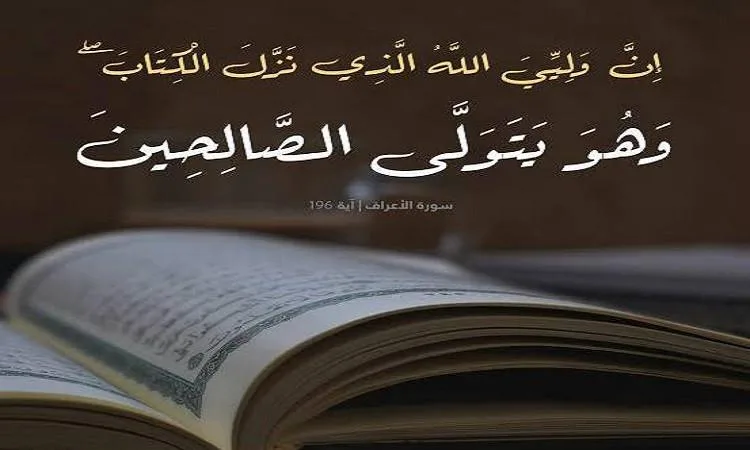 إِنَّ وَلِيِّيَ اللَّهُ الَّذِي نَزَّلَ الْكِتَابَ ۖ
وَهُوَ يَتَوَلَّى الصَّالِحِينَ
سورة الأعراف | آية 196